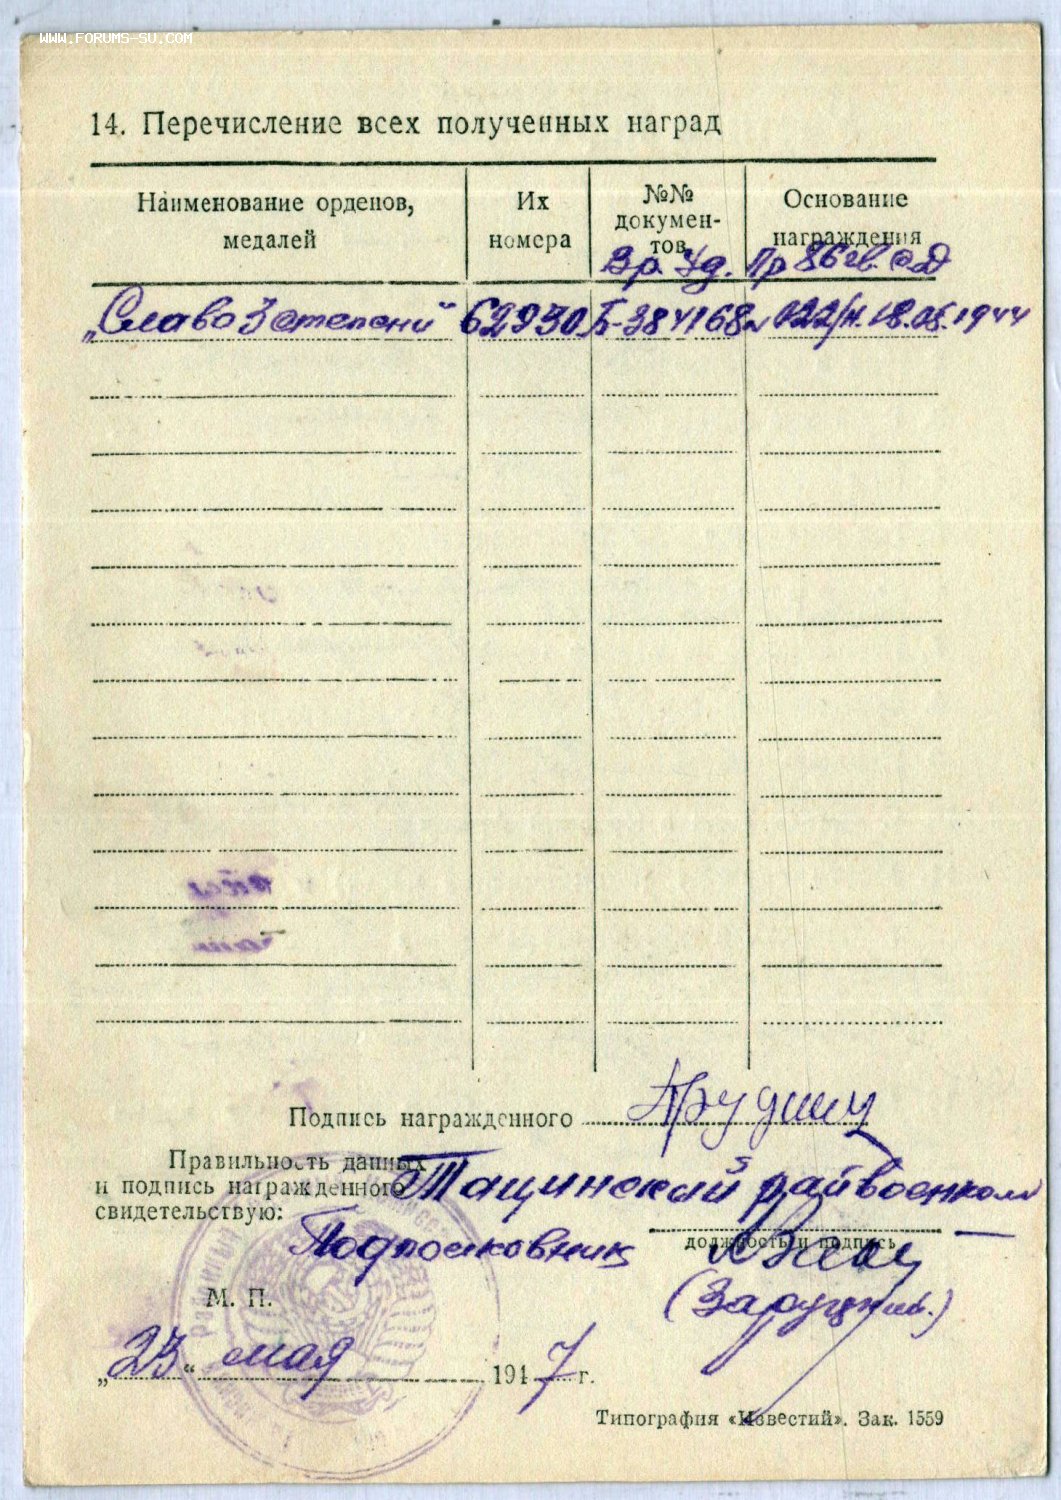 WWW.FORUMS-SU.COM
14. Перечисление всех полученных наград
Наименование орденов, медалей
Их номера
№№ документов
Основание награждения
Вр. Уд. Пр 86 гв. СД
„Слава 3 степени" 62930 Б-384168 № 022/н. 18.05.1944
Подпись награжденного
Правильность данных
и подпись награжденного Тацинский райвоенком
свидетельствую:
Подполковник
должность и подпись
М. П.
(Заруцкий.)
„23“ мая 1947 г.
Типография «Известий». Зак. 1559